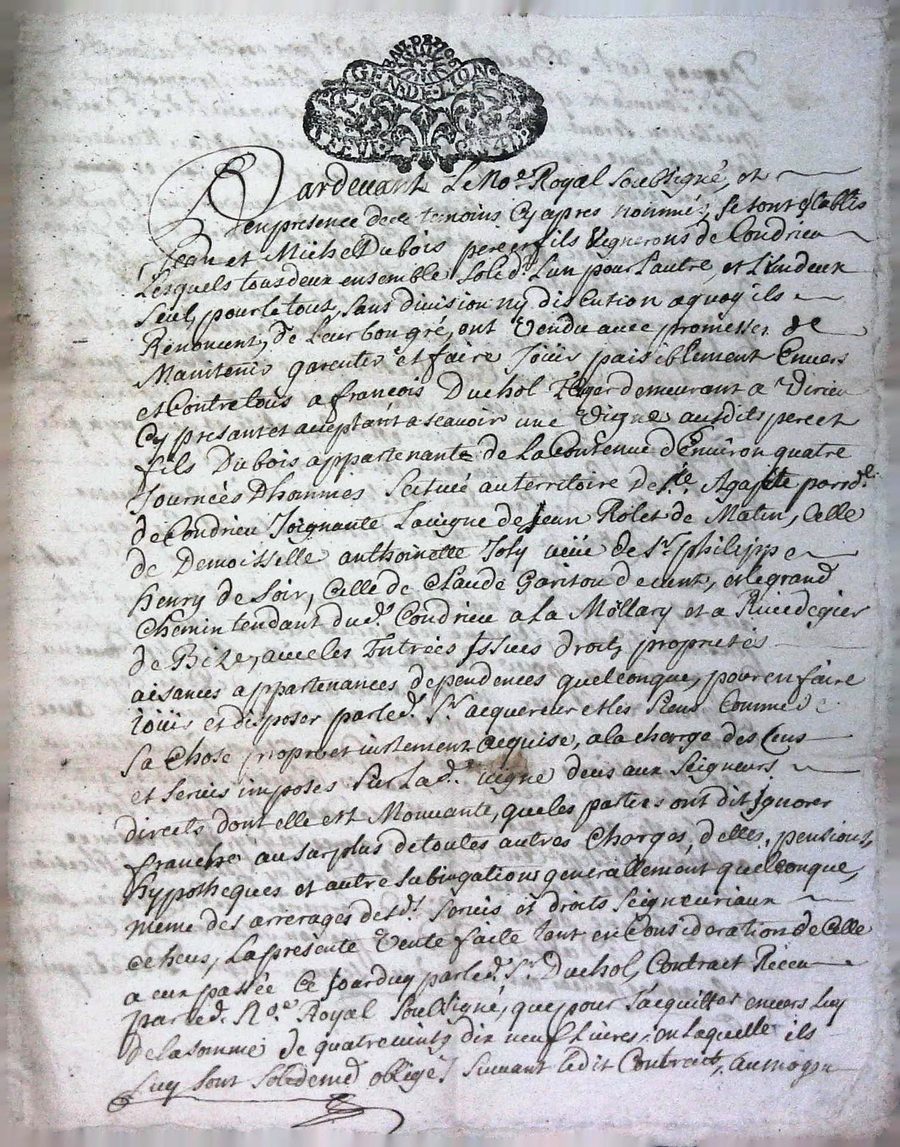 BAU DE 1706
GEN DE LION
Pardevant Le No.e Royal Soubsigné, et
en presence de ce temoins Cy apres nommés, se sont establis
Jean et Michel Dubois pere et fils Vignerons de Condrieu
Lesquels tous deux ensemble Soled.t Lun pour Lautre, et L'un deux
Seul, pour le tout, Sans division ny discution a quoy ils
Renoncent, de Leur bon gré, ont Vendu avec promesses de
Maintenir garentir et faire Joüir paisiblement Envers
et Contre tous a françois Duchol demeurant a Virieu
Cy presant et acceptant a scavoir une Vigne ausdits pere et
fils Dubois appartenante de La Contenue d'Environ quatre
Journées Dhommes Scitué au territoire de S.te Agathe parr.e
de Condrieu Joignante La vigne de Jean Rolet de Matin, Celle
de Demoiselle anthoinette Joly veüe de S.r philippe
henry de Soir, Celle de Claude Paritou de vent, et le grand
Chemin tendant dud.t Condrieu a la Mollary et a Rivedegier
de Bize, avec les Intrées Issues droits, proprietés
aisances appartenances dependences quelconque, pour en faire
Joüis et disposer par led.t S.r acquereur et les Siens Comme de
Sa Chose propre et iustement acquise, a la charge des Cens
et Servis imposes Sur La d.e vigne deus aux Seigneurs
directs dont elle est Mouvante, que les parties ont dit ignorer
franche au surplus de toutes autres Charges, debtes, pensions,
hypotheques et autre Subiugations generallement quelconque,
meme des arrerages desd.s Servis et droits Seigneuriaux
La presente Vente faite tant en Consideration de Celle
a eux passée Ce Jourduy par led.t S.r Duchol, Contract Receu
par led.t No.e Royal Soubsigné, que pour S'acquitter envers Luy
de la somme de quatre vints dix neuf Livres, en Laquelle ils
Luy sont Soledermt obligés Suivant ledit Contract, au moyen